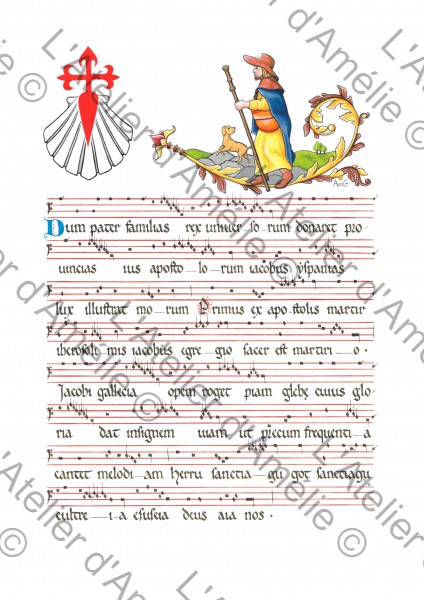 Amlo
Dum pater familias rex univer so rum donaret pro
vincias ius aposto lo rum iacobus yspanias
lux illustrat mo rum Primus ex apostolis martir
iherosoli mis iacobus egre gio sacer est martiri o.
Jacobi gallecia opem roget piam glebe cuius glo
ria dat insignem viam ut precum frequenti a
cantet melodi am herru sanctia gu got sanctiagu
eultre i a esuseia deus aia nos.
L'Atelier d'Amélie ©